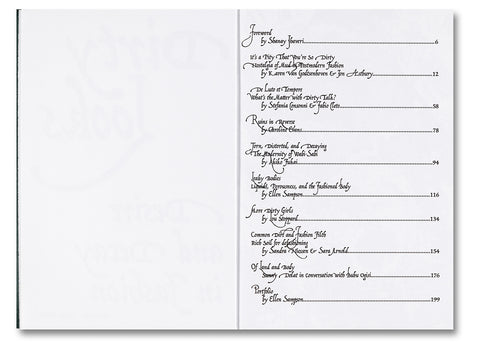 Foreword
by Shanay Jhaveri 6
It's a Pity That You're So Dirty
Nostalgia of Mud in Postmodern Fashion
by Karen Van Godtsenhoven & Jon Astbury 12
De Luto et Tempore
What's the Matter with Dirty Talk?
by Stefania Consonni & Fabio Cleto 58
Ruins in Reverse
by Caroline Evans 78
Torn, Distorted, and Decaying
The Modernity of Wabi-Sabi
by Akiko Fukai 94
Leaky Bodies
Liquids, Porousness, and the Fashioned Body
by Ellen Sampson 116
More Dirty Girls
by Lou Stoppard 134
Common Dirt and Fashion Filth
Rich Soil for
by Sandra Niessen & Sara Arnold 154
Of Land and Body
Sunny Dolat in Conversation with Bubu Ogisi 176
Portfolio
by Ellen Sampson 199
Dirty
Looks
Desire
and Decay
in Fashion